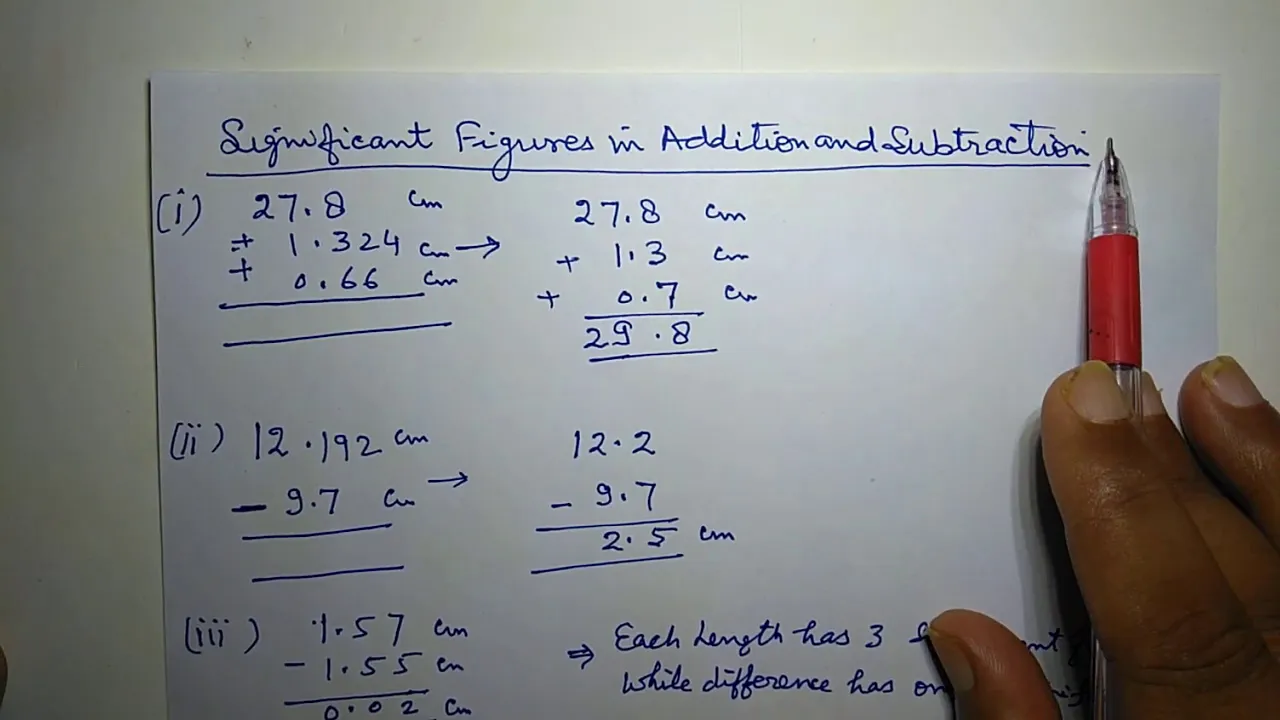 Significant Figures in Addition and Subtraction
(i) 27.8 cm 27.8 cm
+ 1.324 cm → + 1.3 cm
+ 0.66 cm + 0.7 cm
29.8
(ii) 12.192 cm 12.2
- 9.7 cm → - 9.7
2.5 cm
(iii) 1.57 cm ⇒ Each Length has 3
- 1.55 cm while difference has
0.02 cm